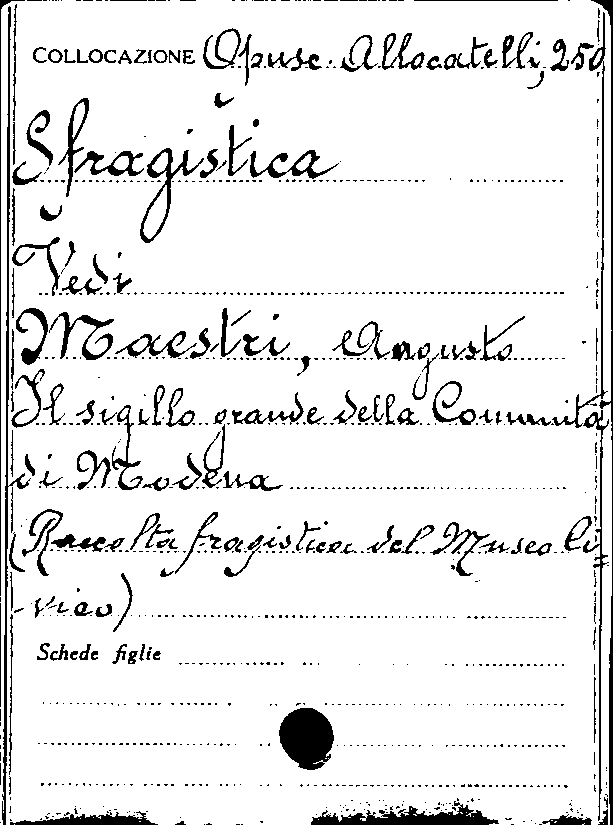 COLLOCAZIONE Opusc. Allocatelli, 250
Sfragistica
Vedi
Maestri, Augusto
Il sigillo grande della Comunità
di Modena
(Raccolta sfragistica del Museo Ci-
-vico)
Schede figlie